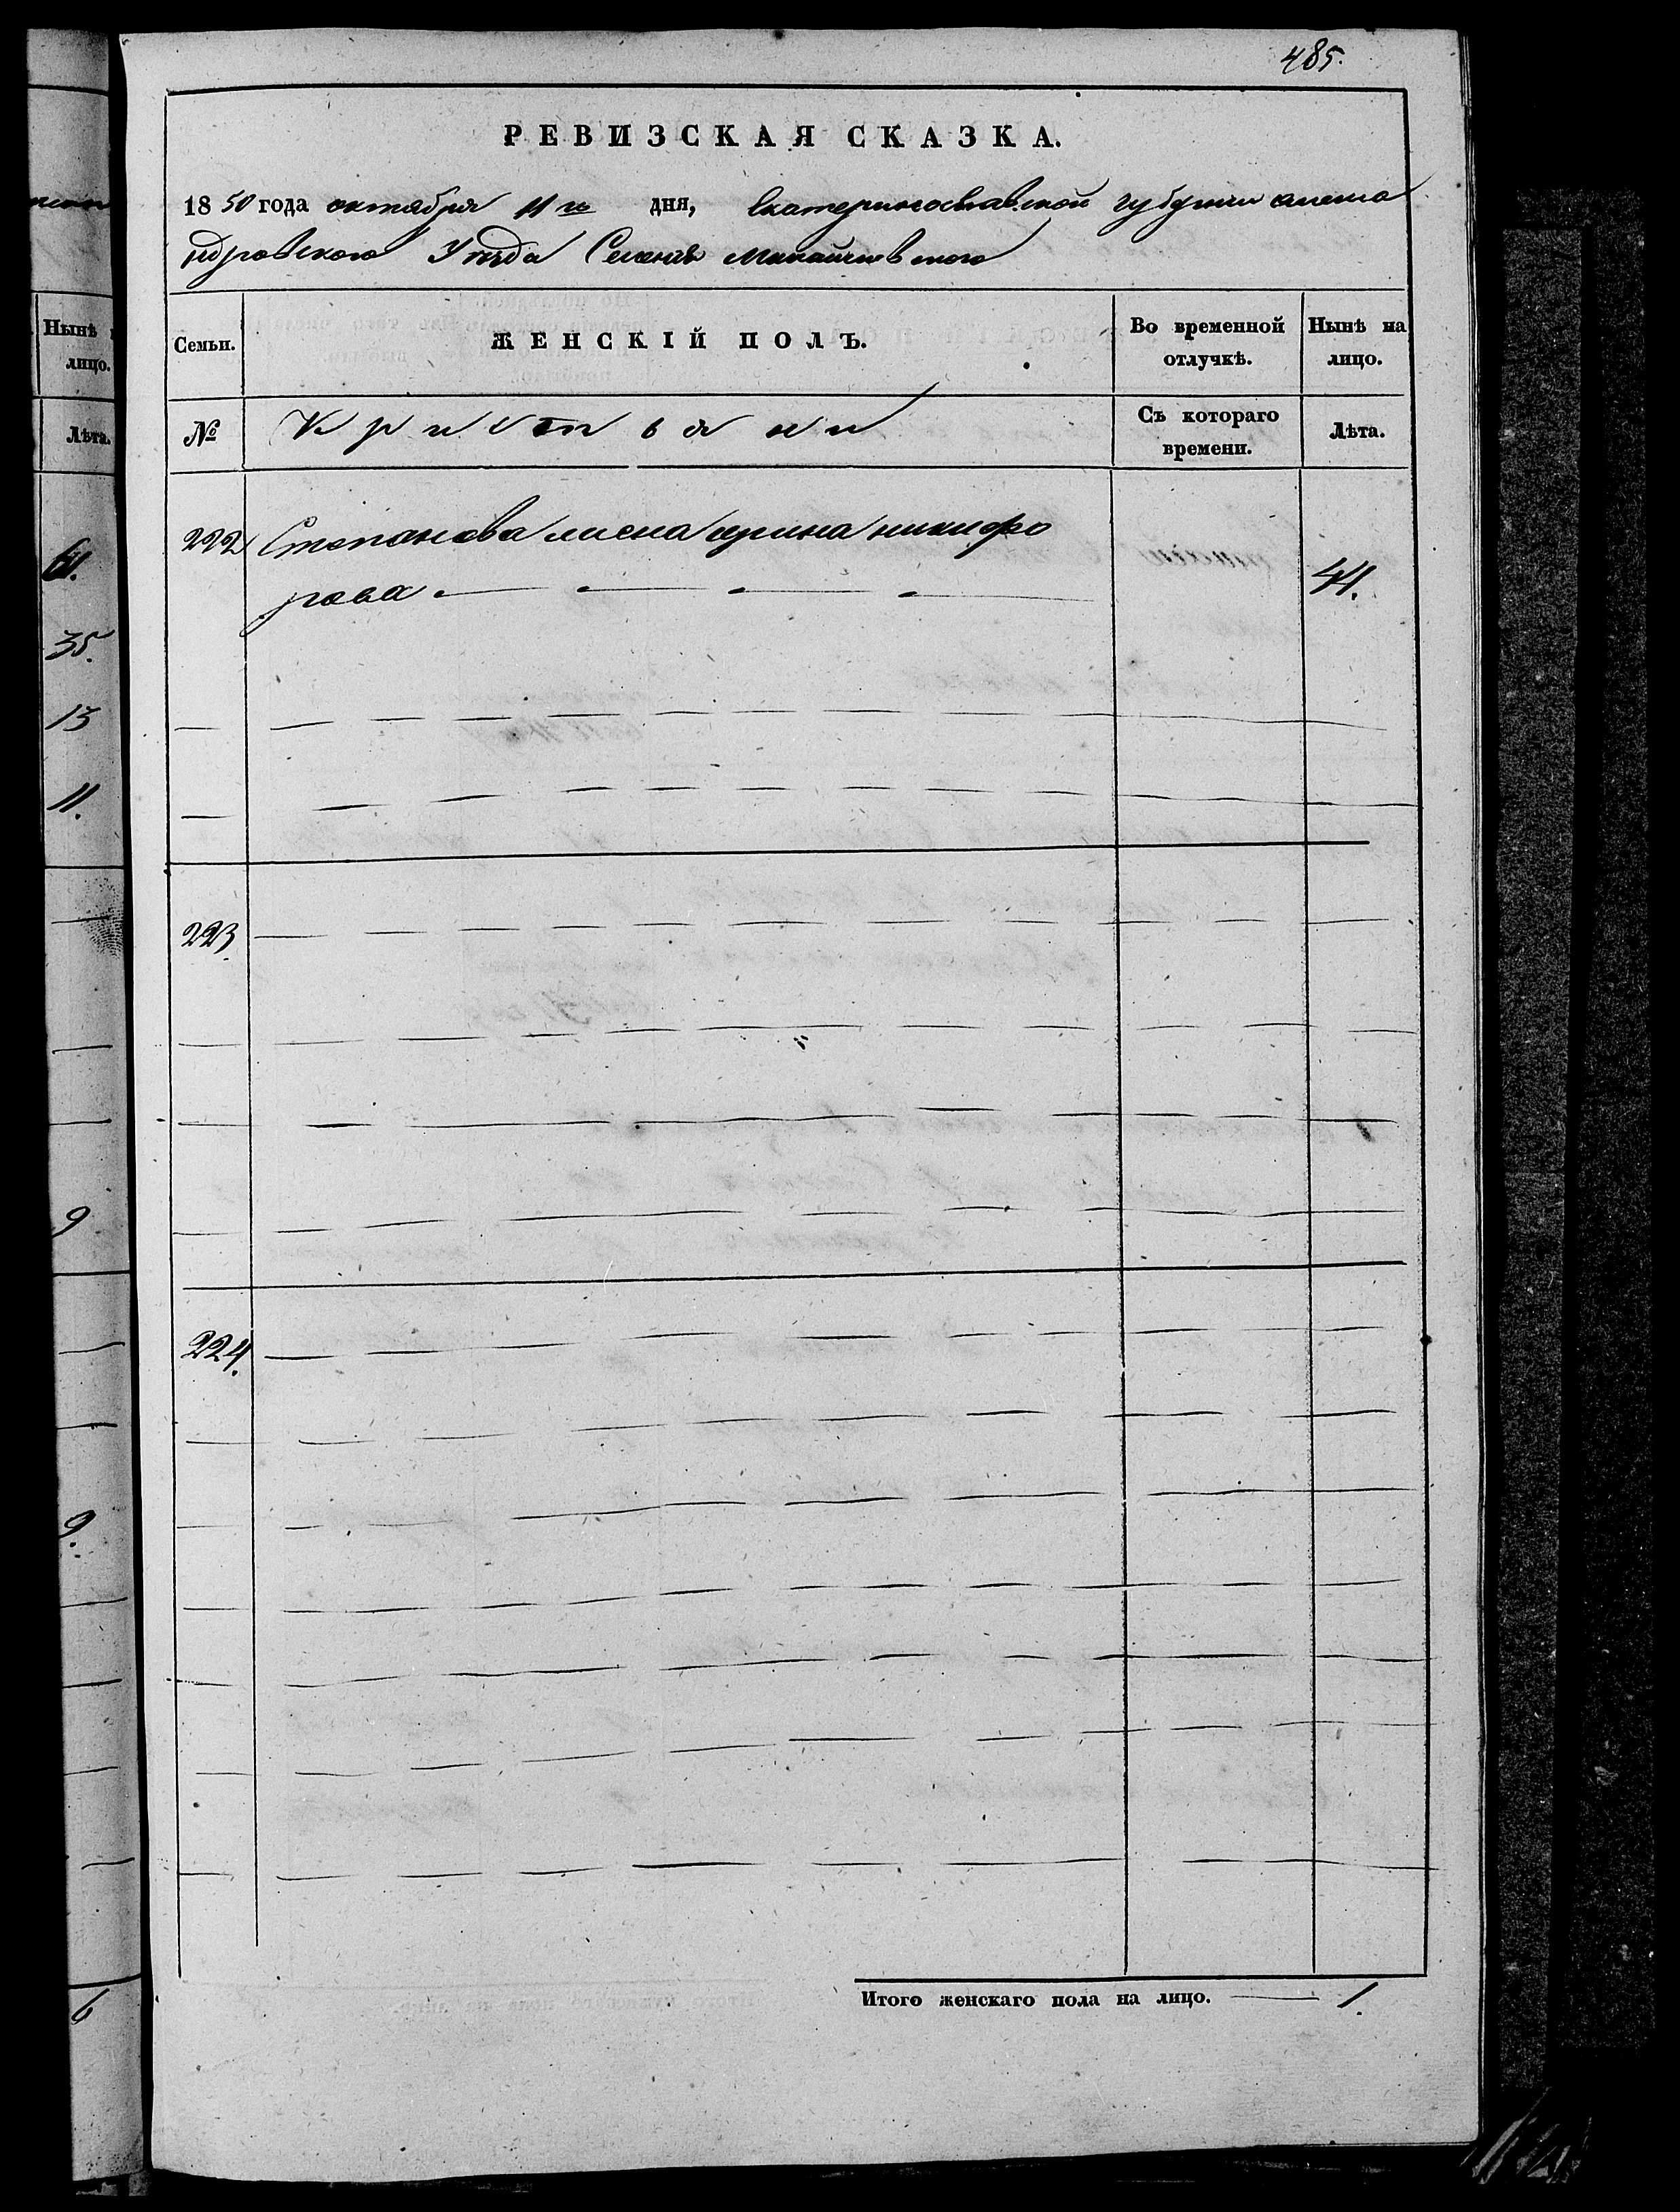 485.
РЕВИЗСКАЯ СКАЗКА.
1850 года октября 11 го дня, Екатеринославской губернии алекса
ндровского Уезда Селения Михайловского
Нынѣ
лицо.
Семьи.
ЖЕНСКІЙ ПОЛЪ.
Во временной отлучкѣ.
Нынѣ на лицо.
Лѣта.
№
Кристьяни
Съ котораго времени.
Лѣта.
222
Степанова жена ирина никифо
рова
41.
61.
35.
13
11.
223.
9
224.
9.
Итого женскаго пола на лицо. 1.
6